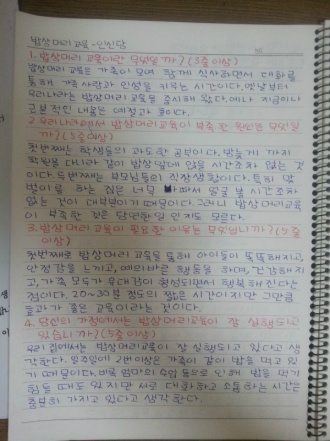 밥상머리교육-인성담
1. 밥상머리 교육이란 무엇일까? (3줄 이상)
밥상머리 교육은 가족이 모여 함께 식사하면서 대화를
통해 가족사랑과 인성을 키우는 시간이다. 옛날부터
우리나라는 밥상머리 교육을 중시해 왔다. 예나 지금이나
근본적인 내용은 예절과 통이다.
2. 우리나라에서 밥상머리교육이 부족한 원인은 무엇일
까? (3줄이상)
첫번째는 학생들의 과도한 공부이다. 밤늦게 까지
학원을 다니라 같이 밥상앞에 앉을 시간조차 없는 것
이다. 두번째는 부모님들의 직장생활이다. 특히 맞
벌이를 하는 집은 너무 바빠서 얼굴 볼 시간조차
없는 것이 대부분이기 때문이다. 그러니 밥상머리교육
이 부족한 것은 당연한일 인지도 모른다.
3. 밥상머리 교육이 필요한 이유는 무엇입니까? (5줄
이상)
첫번째로 밥상머리 교육을 통해 아이들이 똑똑해지고,
안정감을 느끼고, 예의바른 행동을 하며, 건강해지
고, 가족 모두가 유대감이 형성되면서 행복해진다는
점이다. 20~30분 정도의 짧은 시간이지만 그만큼
효과가 좋은 교육이라는 것이다.
4. 당신의 가정에서는 밥상머리교육이 잘 실행되고
있습니까? (5줄 이상)
우리 집에서는 밥상머리교육이 잘 실행되고 있다고 생
각한다. 일주일에 2번이상은 가족이 같이 밥을 먹고 있
기 때문이다. 비록 엄마의 수업 등으로 인해 밥을 먹기
힘들 때도 있지만 서로 대화하고 소통하는 시간은
충분히 가지고 있다고 생각한다.